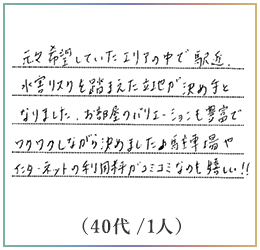 元々希望していたエリアの中で駅近、
水害リスクを踏まえた立地が決め手と
なりました。お部屋のバリエーションも豊富で
ワクワクしながら決めました♪駐車場や
インターネットの利用料がコミコミなのも嬉しい!!
(40代/1人)